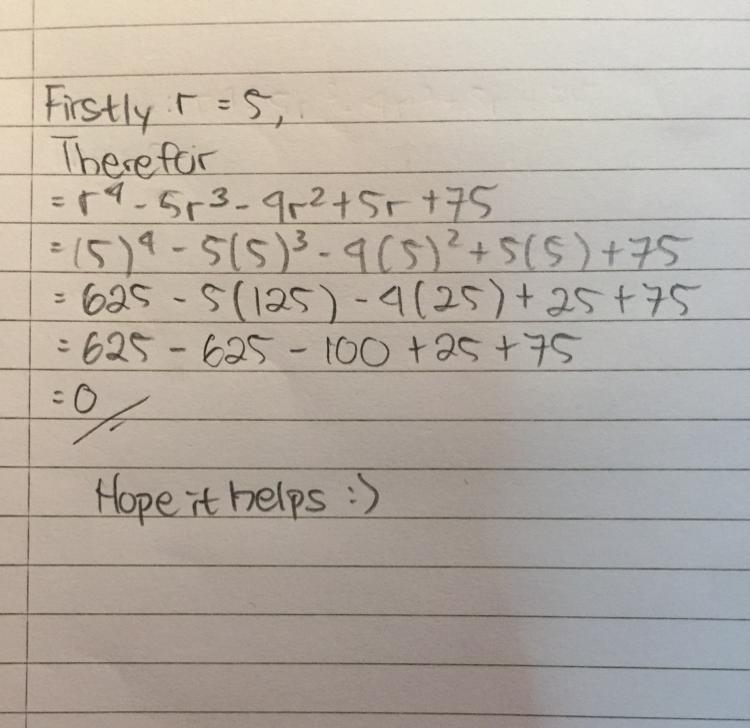 Firstly r = 5,
Therefor
= r⁴ - 5r³ - 4r² + 5r + 75
= (5)⁴ - 5(5)³ - 4(5)² + 5(5) + 75
= 625 - 5(125) - 4(25) + 25 + 75
= 625 - 625 - 100 + 25 + 75
= 0
Hope it helps :)